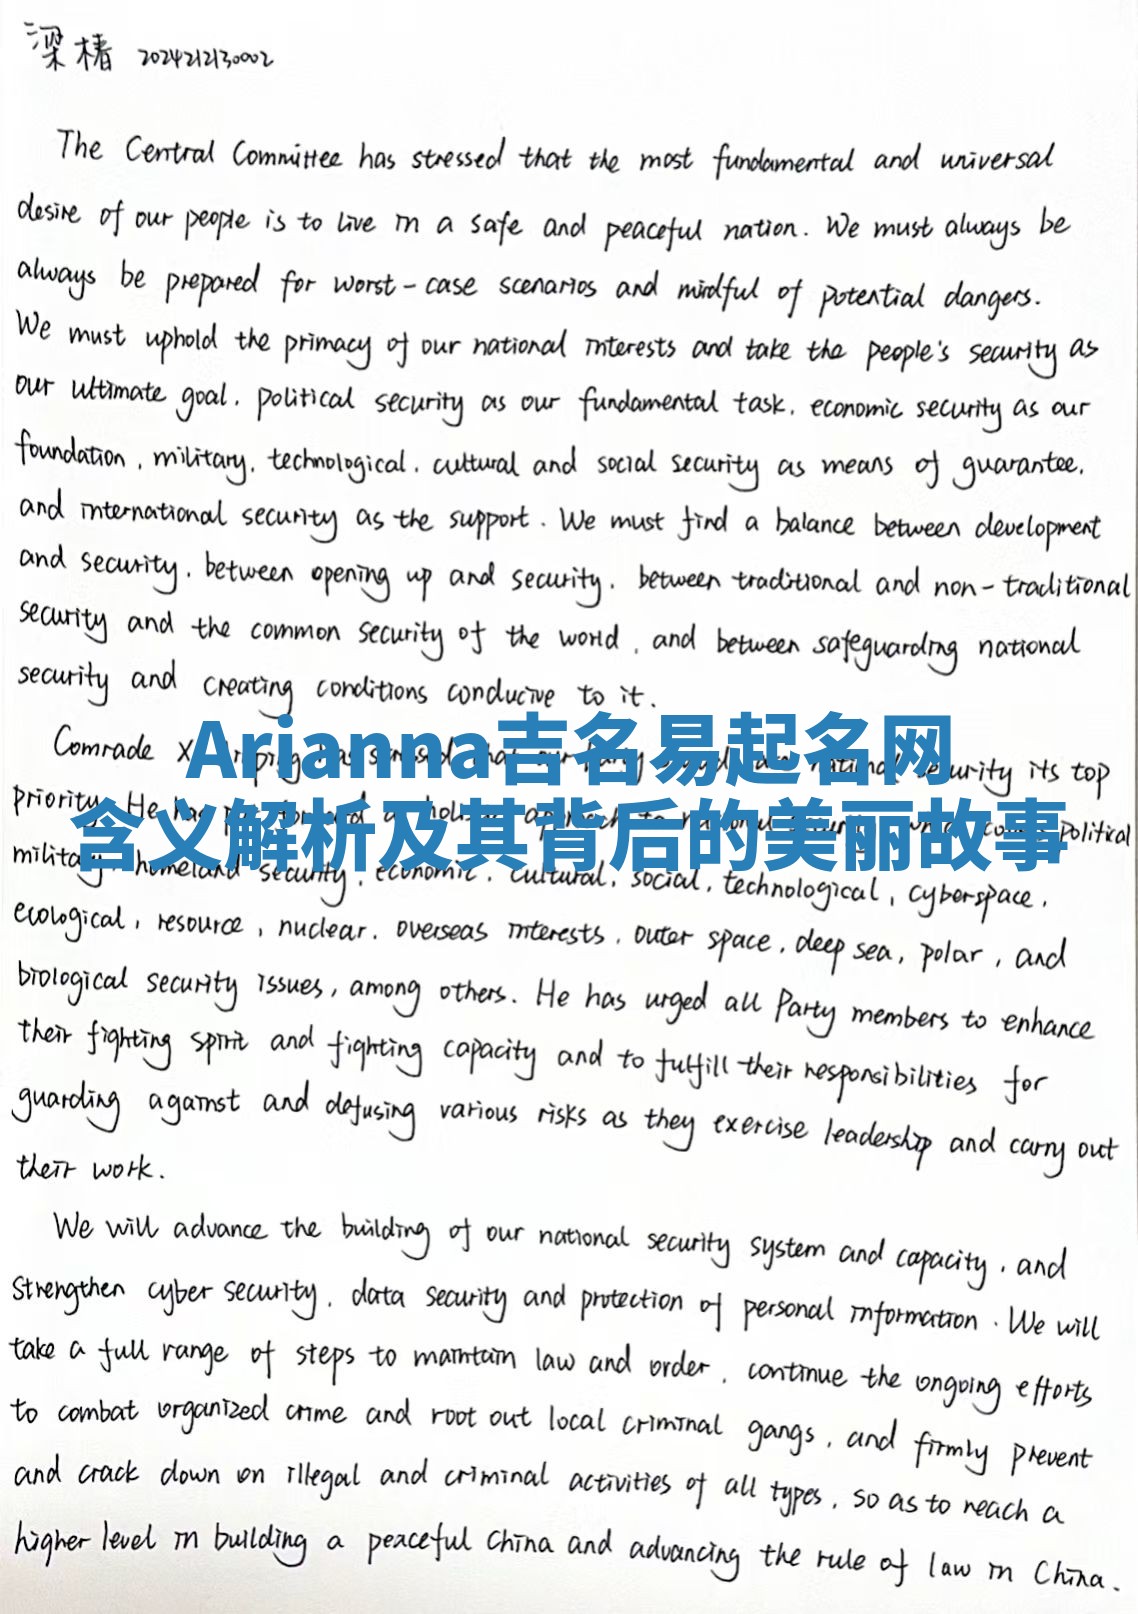 梁椿 2024212130002
The Central Committee has stressed that the most fundamental and universal
desire of our people is to live in a safe and peaceful nation. We must always be
always be prepared for worst-case scenarios and mindful of potential dangers.
We must uphold the primacy of our national interests and take the people's security as
our ultimate goal, political security as our fundamental task, economic security as our
foundation, military, technological, cultural and social security as means of guarantee,
and international security as the support. We must find a balance between development
and security, between opening up and security, between traditional and non-traditional
security and the common security of the world, and between safeguarding national
security and creating conditions conducive to it.
Comrade national security its top
Arianna吉名易起名网
priority. He has political
含义解析及其背后的美丽故事
military, homeland security, economic, cultural, social, technological, cyberspace,
ecological, resource, nuclear, overseas interests, outer space, deep sea, polar, and
biological security issues, among others. He has urged all Party members to enhance
their fighting spirit and fighting capacity and to fulfill their responsibilities for
guarding against and defusing various risks as they exercise leadership and carry out
their work.
We will advance the building of our national security system and capacity, and
strengthen cyber security, data security and protection of personal information. We will
take a full range of steps to maintain law and order, continue the ongoing efforts
to combat organized crime and root out local criminal gangs, and firmly prevent
and crack down on illegal and criminal activities of all types, so as to reach a
higher level in building a peaceful China and advancing the rule of law in China.